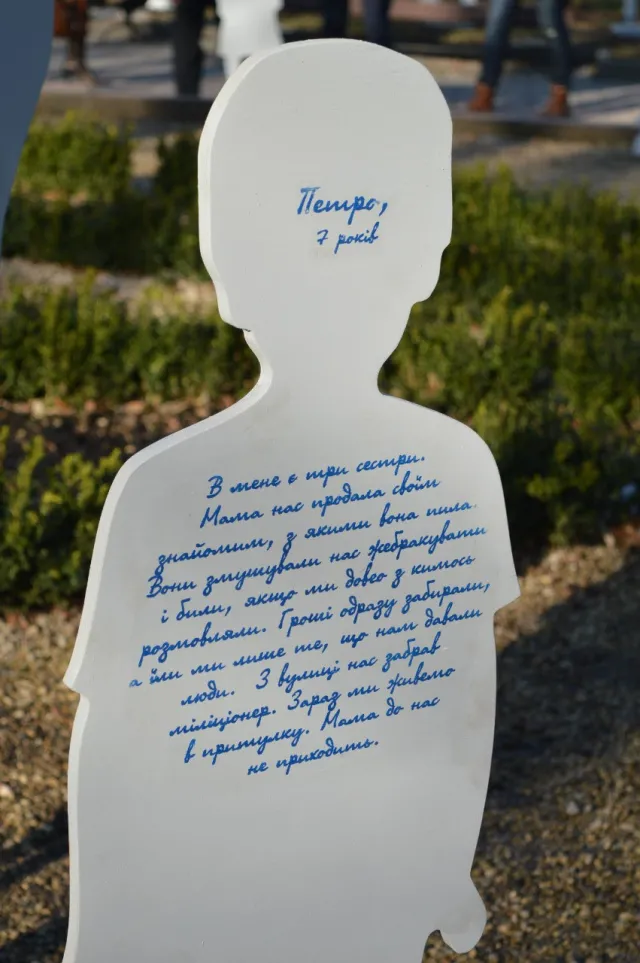 Петро,
7 років
В мене є три сестри.
Мама нас продала своїм
знайомим, з якими вона пила.
Вони змушували нас жебракувати
і били, якщо ми довго з кимось
розмовляли. Гроші одразу забирали,
а їли ми лише те, що нам давали
люди. З вулиці нас забрав
міліціонер. Зараз ми живемо
в притулку. Мама до нас
не приходить.